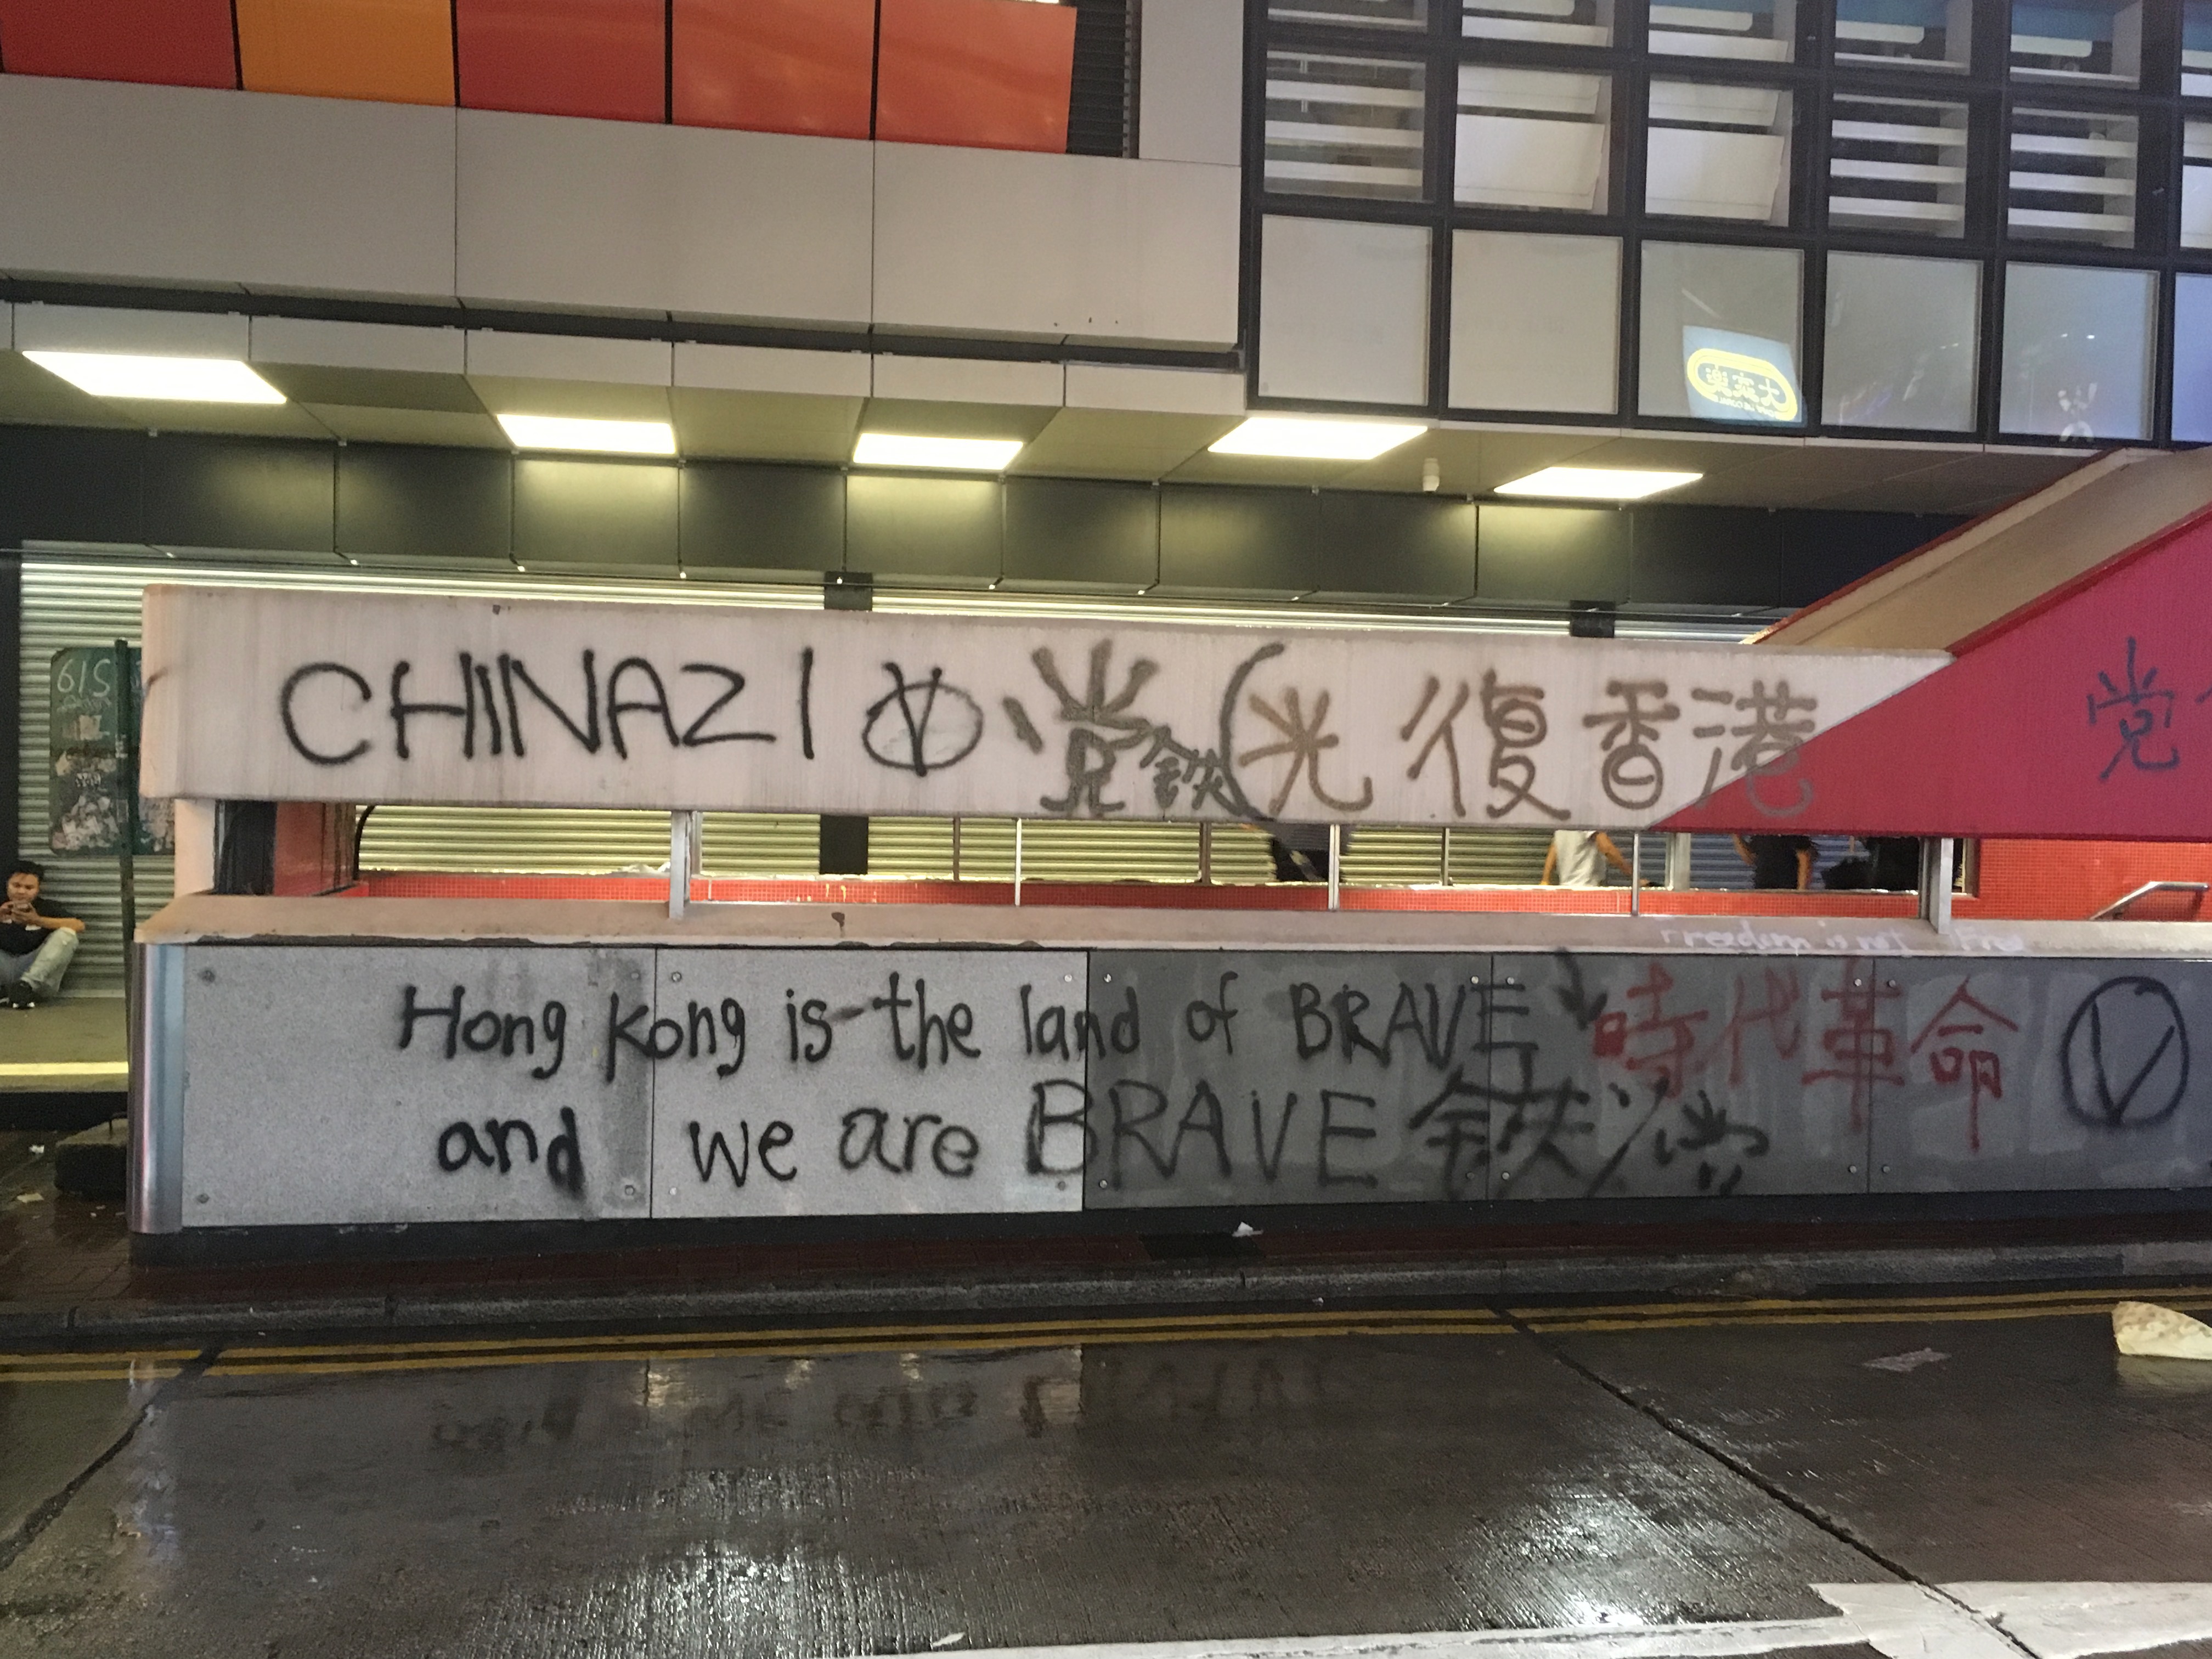 CHINAZI
党 鉄
光復香港
党
61S
Freedom is not Free
Hong Kong is the land of BRAVE
時代革命
V
and we are BRAVE 鉄 党